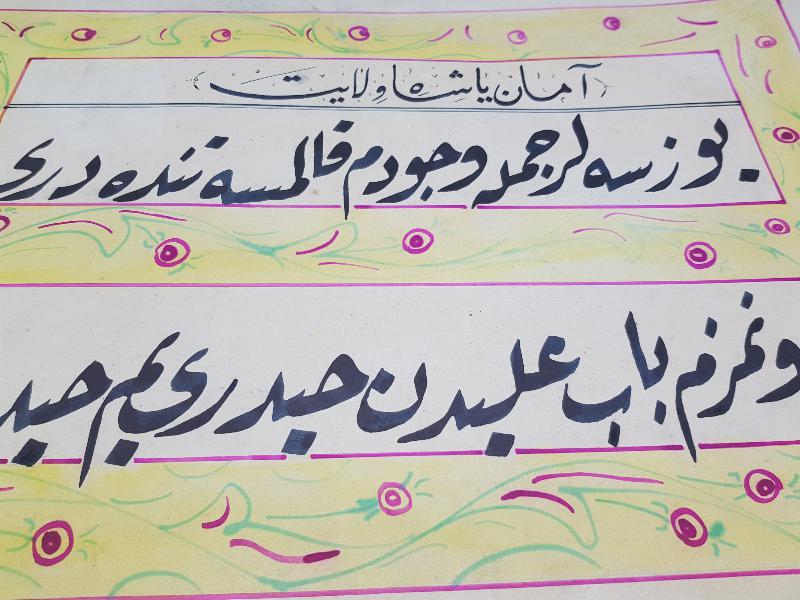 آمان یا شاه ولایت
یوزسه لر جمله وجودم قالمسه تنده دری
دونمزم باب علیدن حیدری یم حید